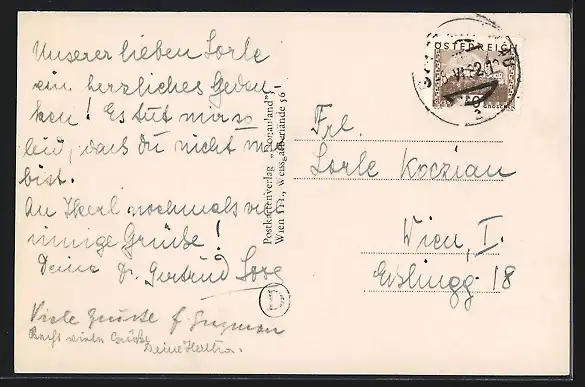 Unserer lieben Lorle
ein herzliches Geden
ken! Es tut mir so
leid, dass du nicht mit
bist.
An Ikerl nochmals viele
innige Grüsse!
Deine Dr. Gertrud
Viele Grüsse
viele Grüsse
Deine
Postkartenverlag „Donauland"
Wien III., Weissgärberlände 56
D
ÖSTERREICH
GROSCHEN
Frl.
Lorle Koczian
Wien, I.
18